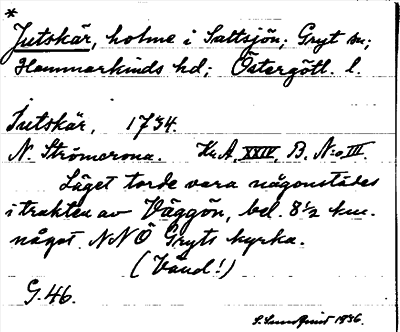 *
Jutskär, holme i Saltsjön; Gryt sn;
Hammarkinds hd; Östergötl. l.
Jutskär, 1734.
N. Strömcrona. Kr.A. XXIV, B. N:o III.
Läget torde vara någonstädes
i trakten av Väggön, bel. 8½ km.
något NNÖ Gryts kyrka.
(Vänd!)
G. 46.
S. Sundquist 1936.